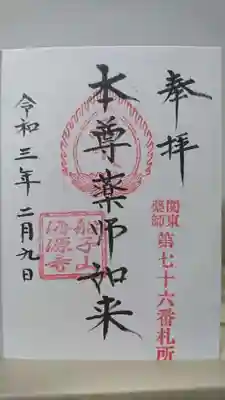 奉拝
関東
薬師
第七十六番札所
本尊薬師如来
子山
源寺
令和三年二月九日